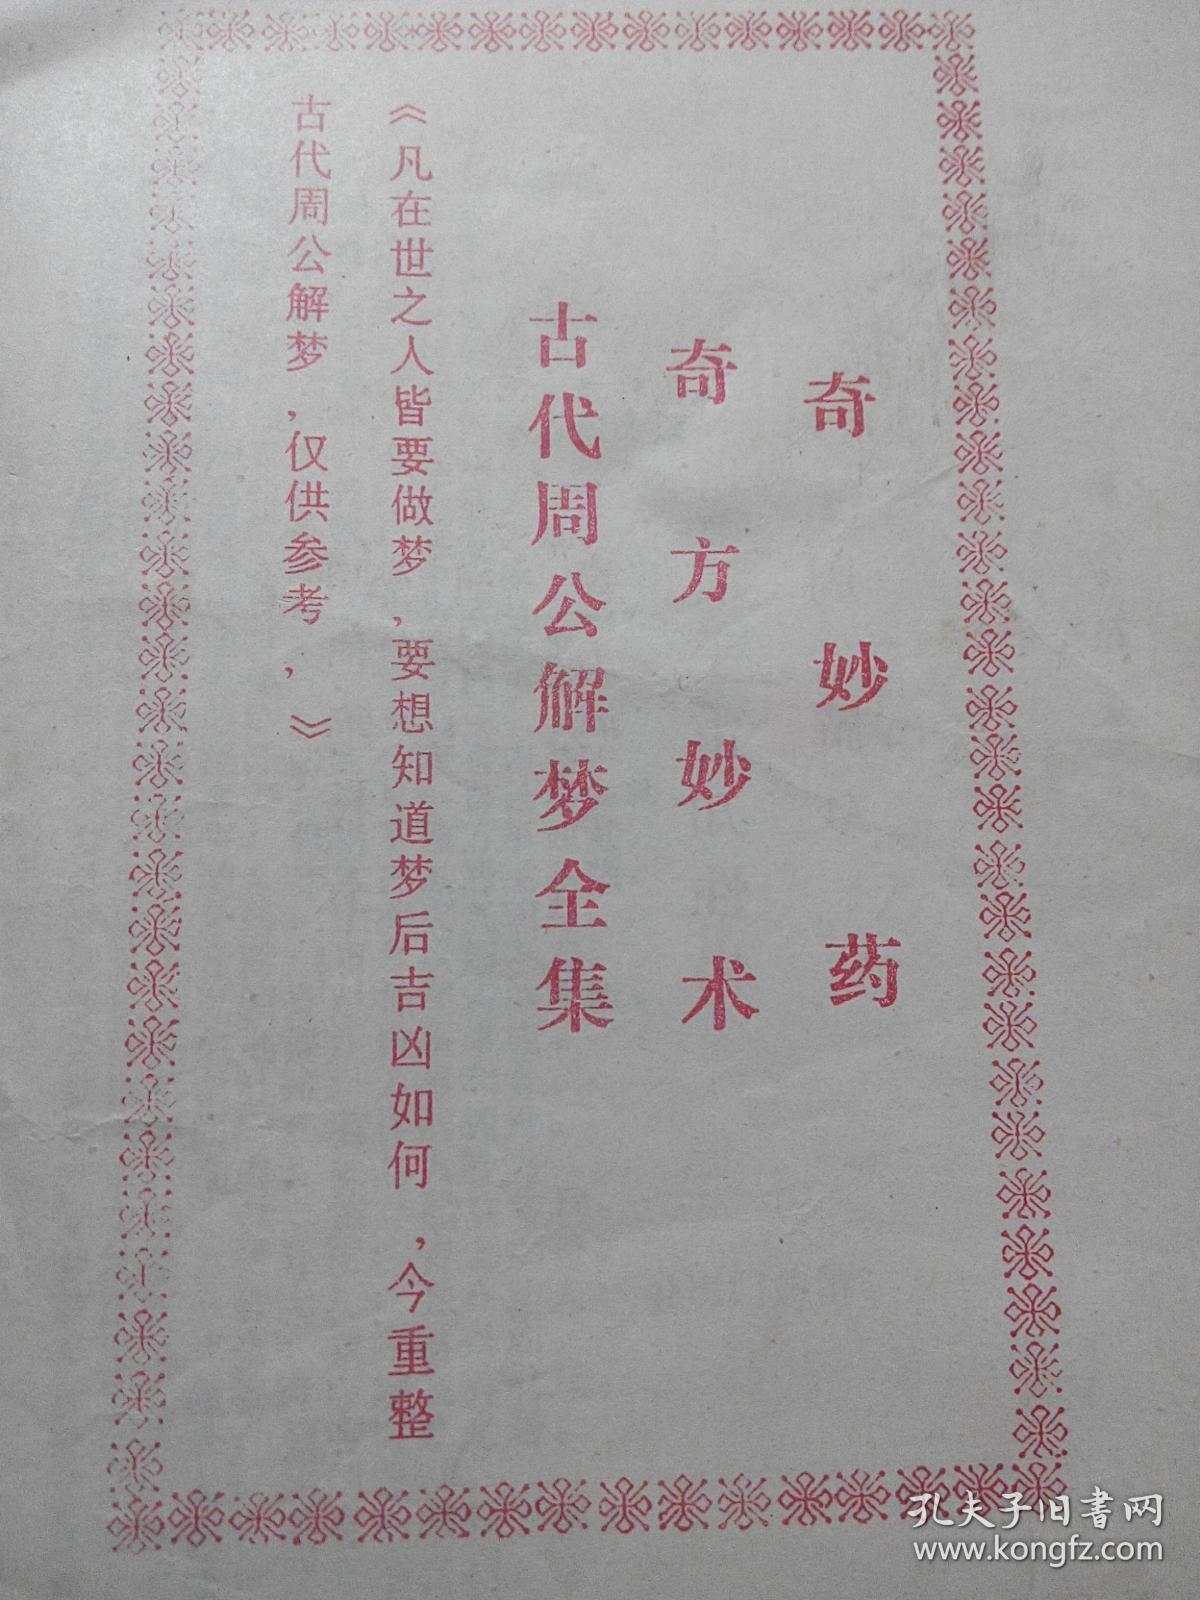 奇妙药
奇方妙术
古代周公解梦全集
《凡在世之人皆要做梦,要想知道梦后吉凶如何,今重整
古代周公解梦,仅供参考,》
孔夫子旧书网
www.kongfz.com